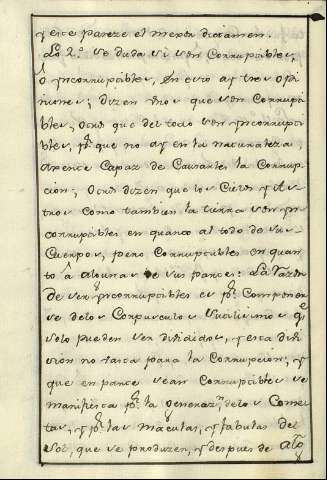 y este pareze el mexor dictamen.
Lo 2º se duda si son Corruptibles,
o yncorruptibles, En esto ay tres opi
niones; dizen unos que son Corrupti
bles; otros que del todo son yncorrupti
bles, pr. que no ay en la naturaleza
agente Capaz de Causarles la Corrup
cion; Otros dizen que los Cielos y As
tros como tambien la tierra son yn
corruptibles en quanto al todo de sus
Cuerpos, pero Corruptibles en quan
to â algunas de sus partes: La razon
de ser yncorruptibles es pr. Componer
se de los Corpusculos sutilisimos q̃
solo pueden ser divididos, y esta divi
sion no basta para la Corrupcion; y
que en parte sean Corruptibles se
manifiesta pr. la generazn. de los Come
tas, y pr. las maculas, y fabulas del
Sol, que se produzen, y despues de algo